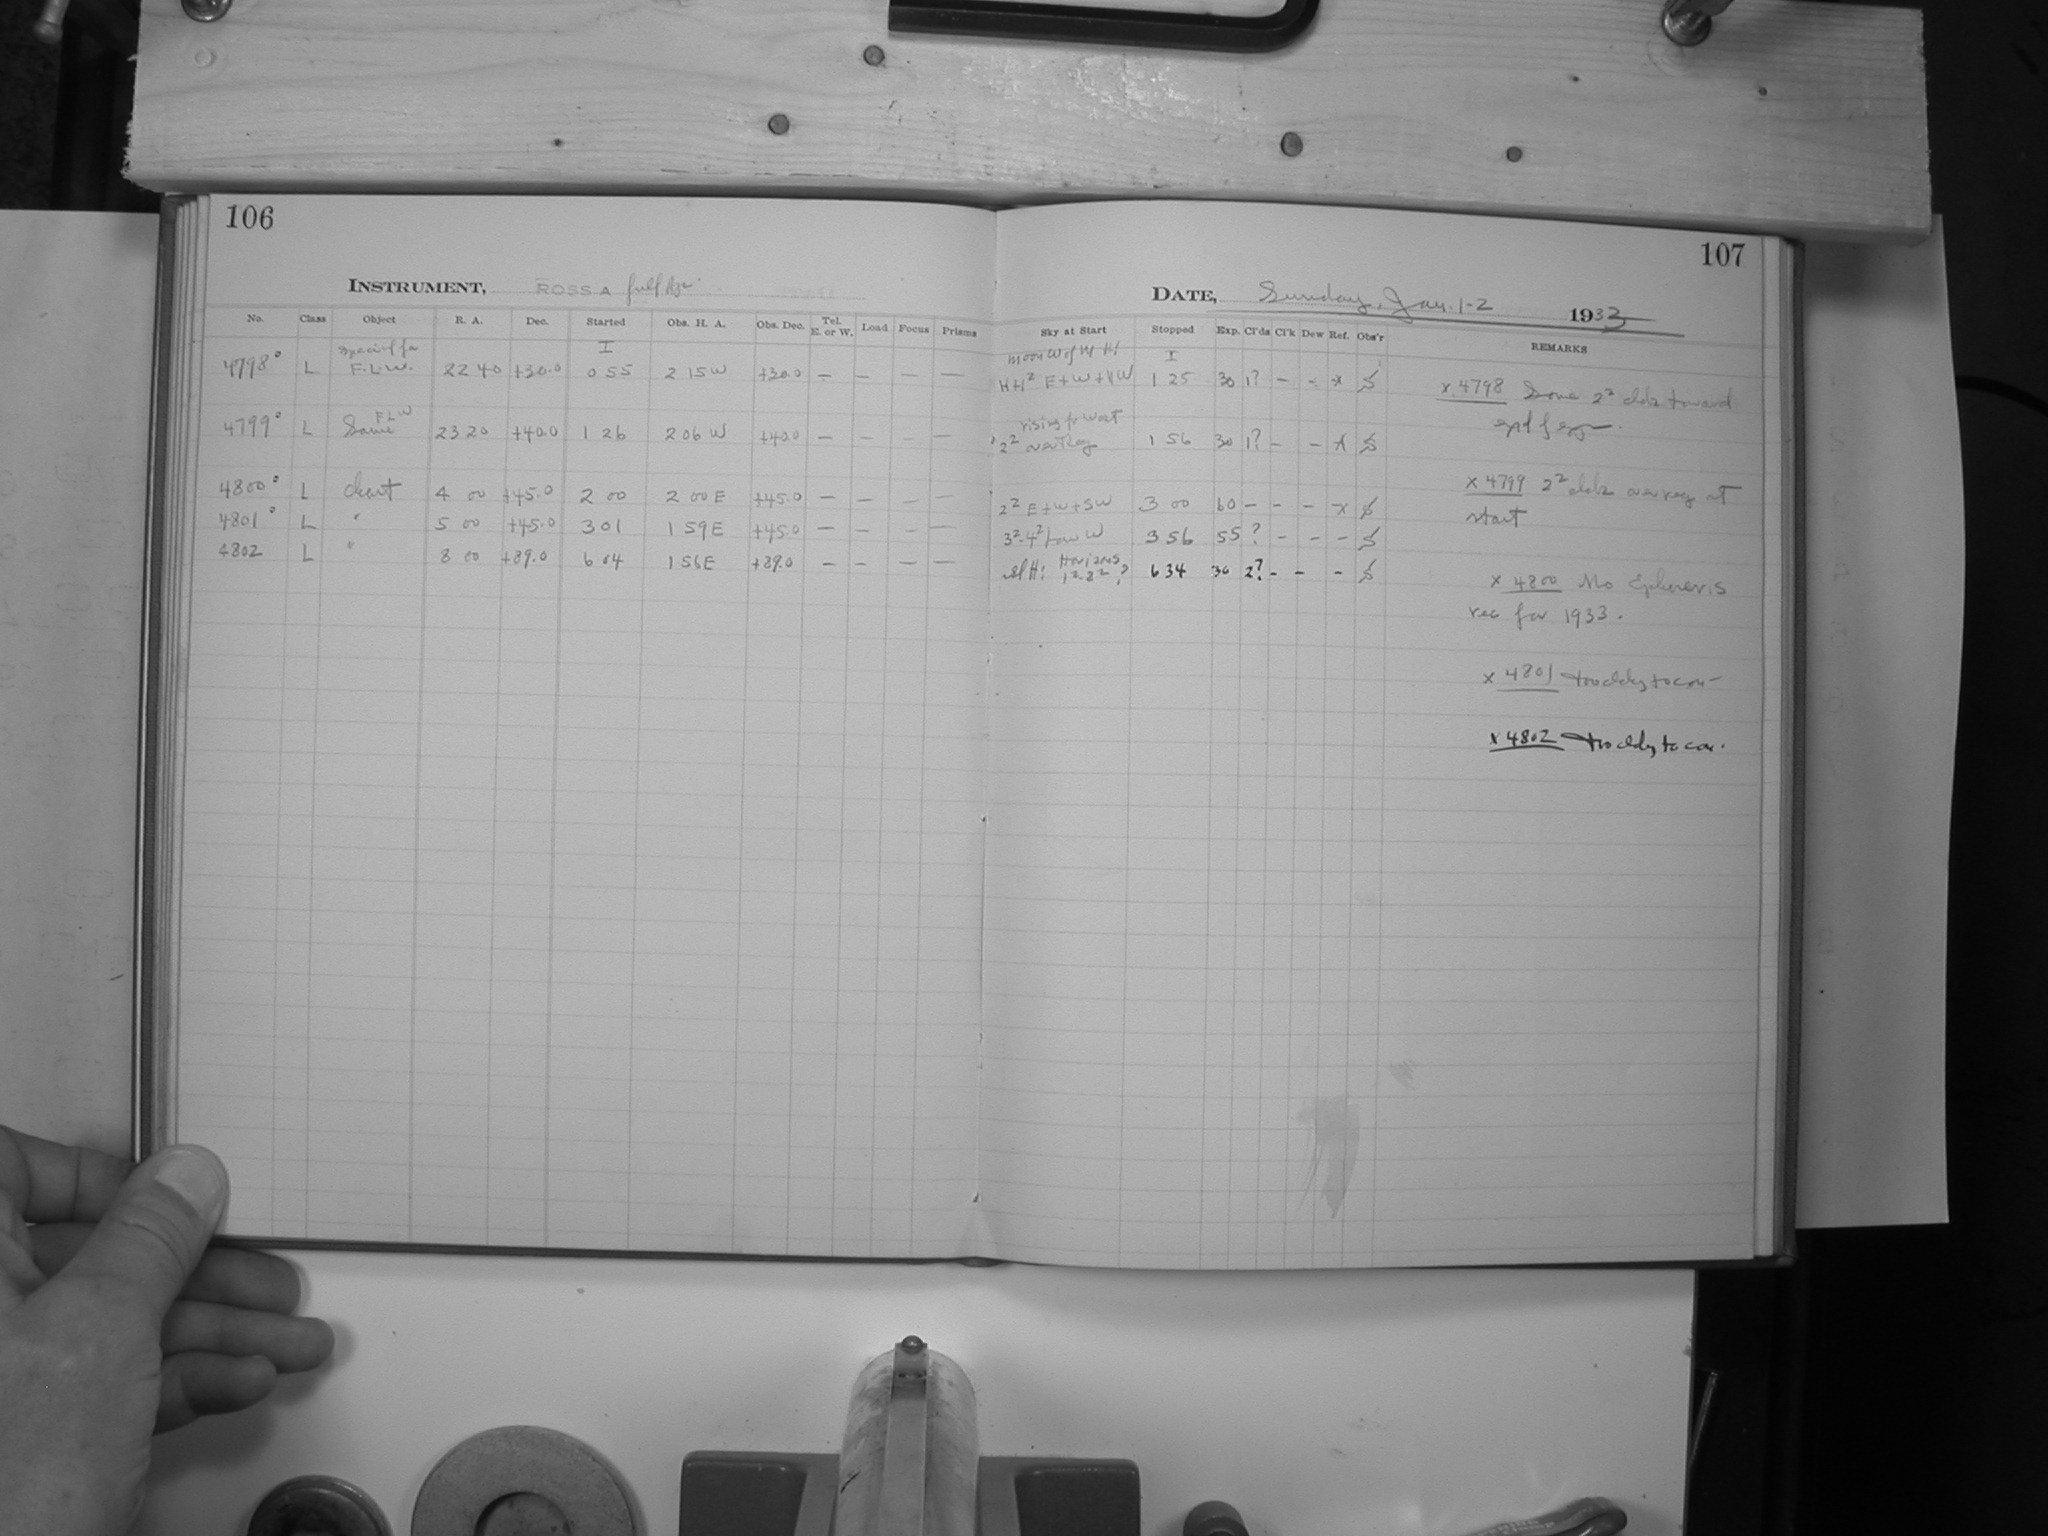 106
107
INSTRUMENT, ROSS A full Ap.
DATE, Sunday, Jan. 1-2 1933
No. Class Object R. A. Dec. Started Obs. H. A. Obs. Dec. Tel. E. or W. Load Focus Prisms Sky at Start Stopped Exp. Cl'ds Cl'k Dew Ref. Obs'r REMARKS
special for I moon W of M H! I
4798° L F.L.W. 22 40 +30.0 0 55 2 15 W +30.0 — — — — H+1² E+W+NW 1 25 30 1? – – x S
F L W rising fr West
4799° L Same 23 20 +40.0 1 26 2 06 W +40.0 — — — — 2² 1 56 30 1? – – x S
4800° L chart 4 00 +45.0 2 00 2 00 E +45.0 — — — — 2² E+W+SW 3 00 60 – – – x S
4801° L " 5 00 +45.0 3 01 1 59 E +45.0 — — — — 3²-4² low W 3 56 55 ? – – – S
Horizons
4802 L " 8 00 +89.0 6 04 1 56 E +89.0 — — — — 1²-2²? 6 34 30 2? – – – S
x 4798 Some 2² clds toward
end of exp.
x 4799 2² clds at
start
x 4800 No Ephemeris
rec for 1933.
x 4801 too cldy to con
x 4802 too cldy to con.